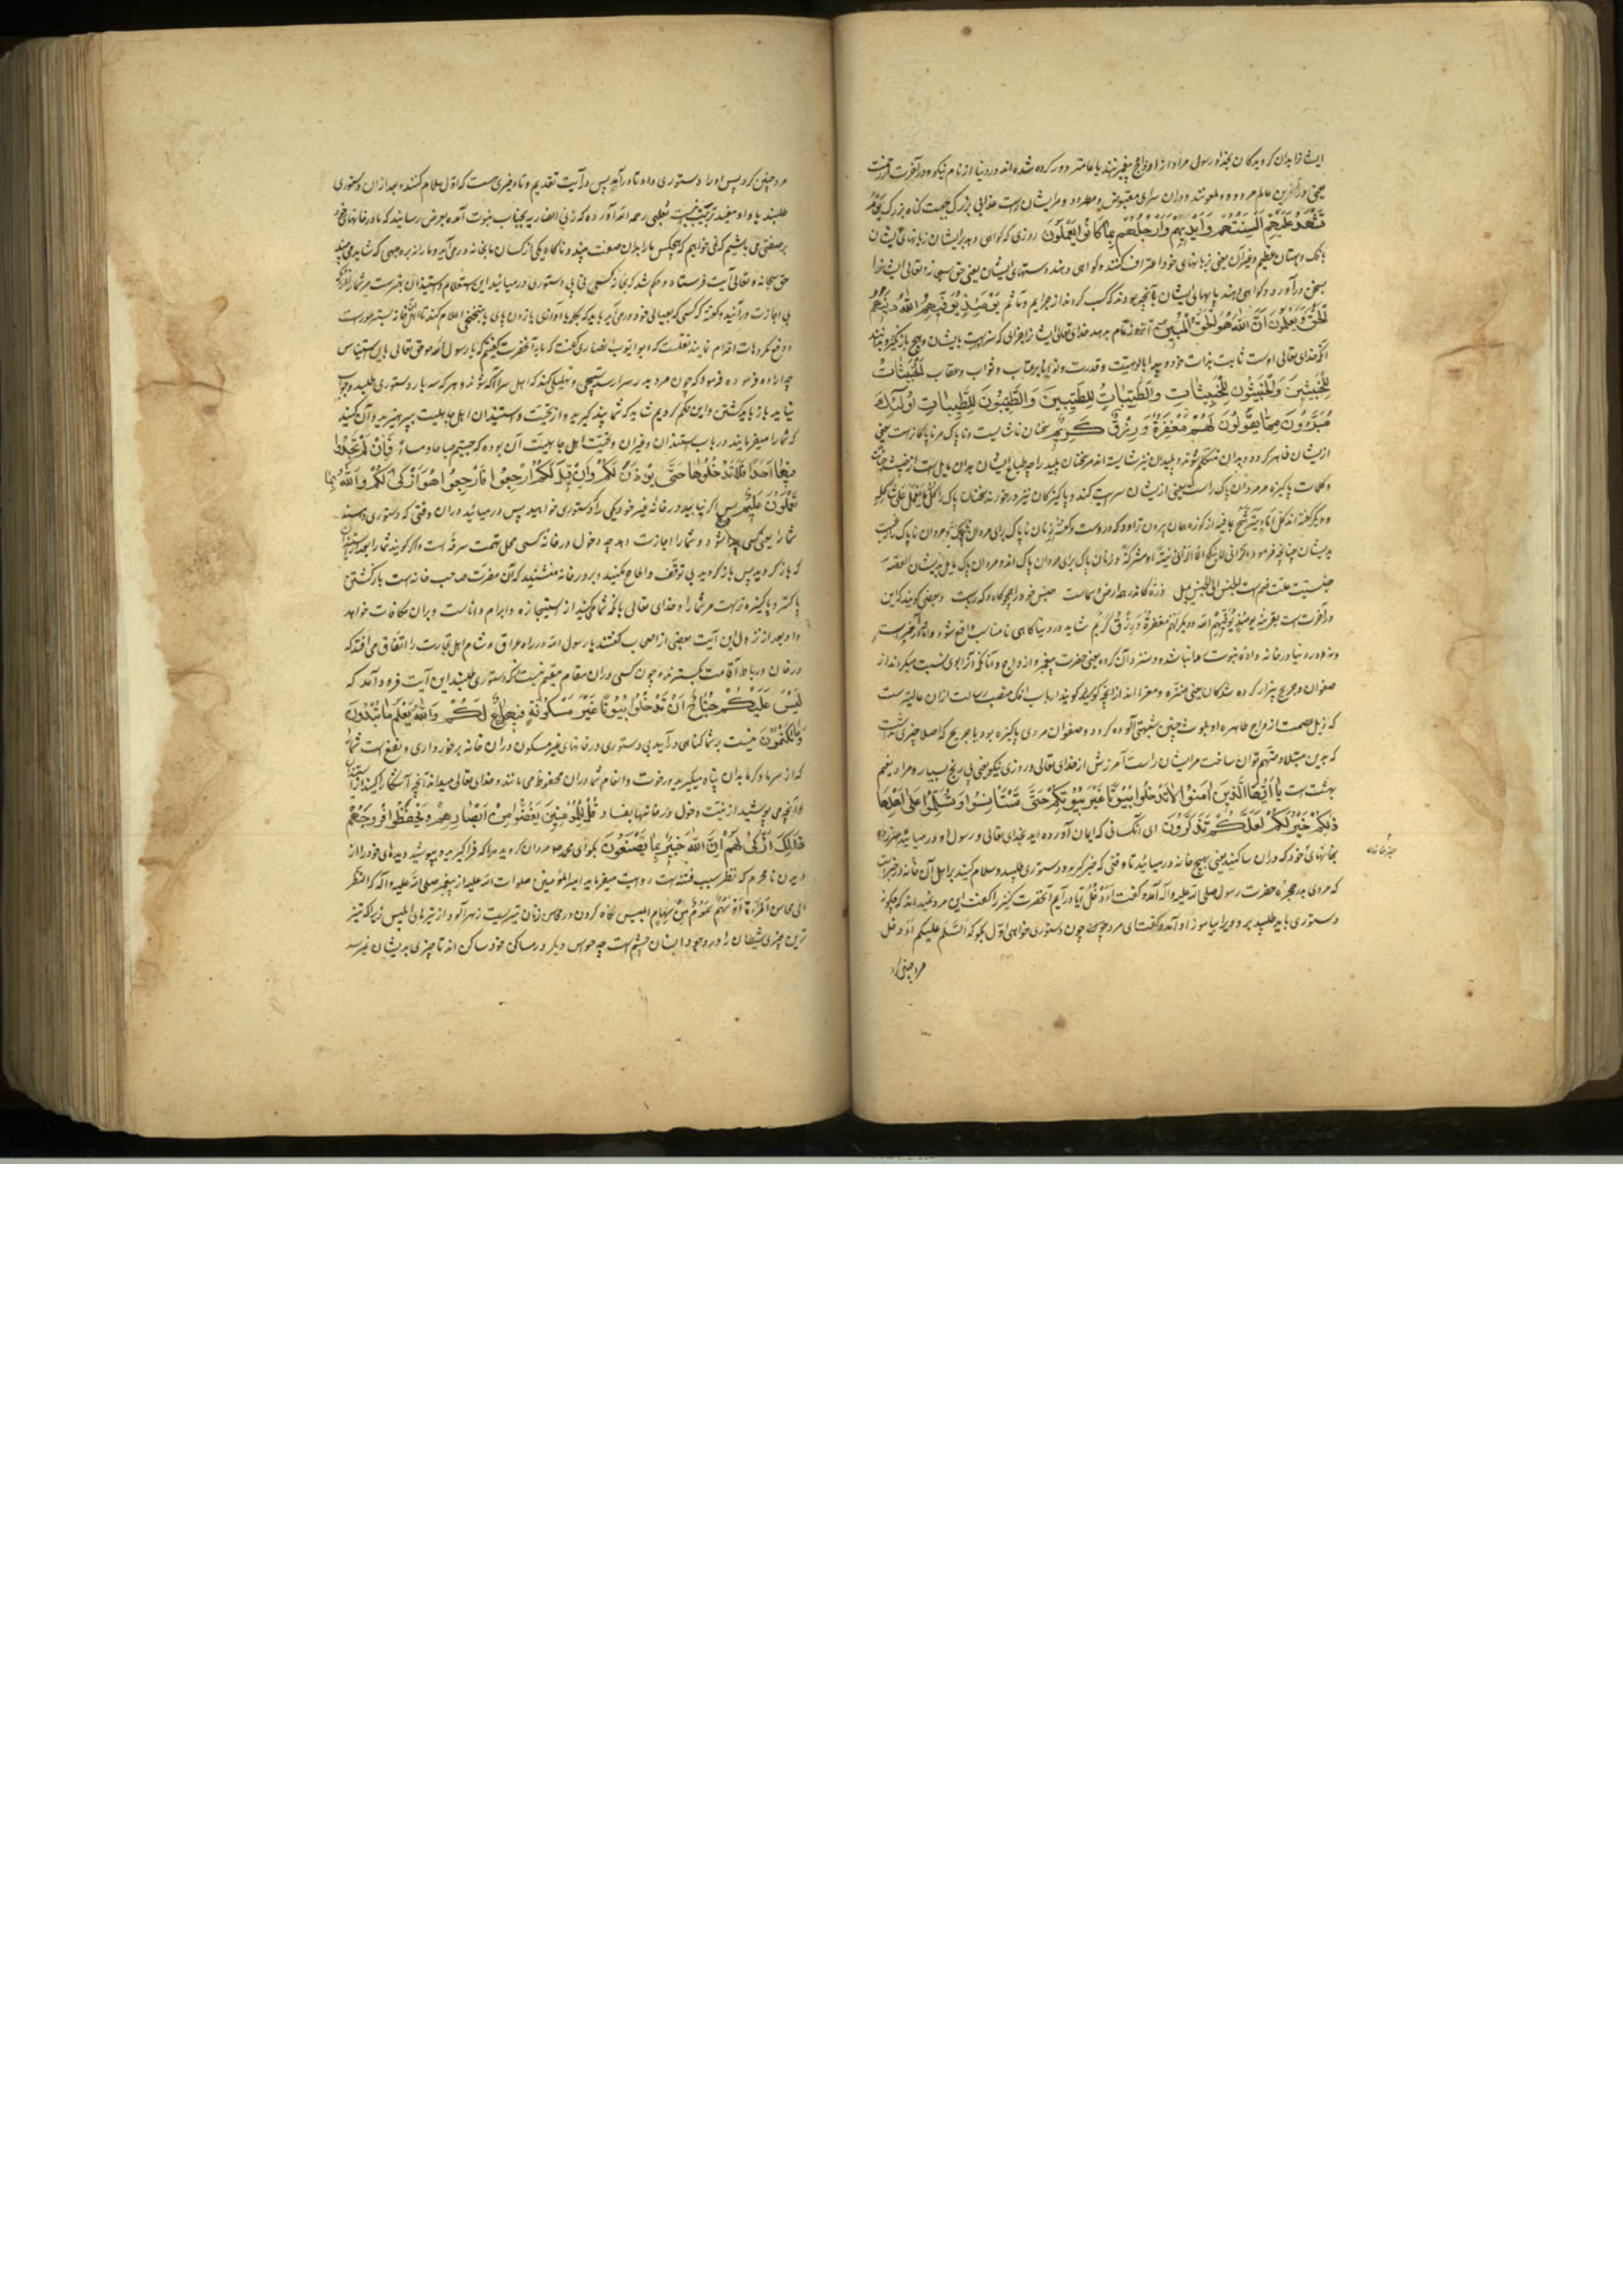 ایشانرا بدان کرویدکان بخدا و رسول مراد ازواج پیغمبرند یا عامتر دور کرده شده‌اند در دنیا از نام نیکو و در آخرت از رحمت
یعنی درین عالم مردود و ملعونند و در آن سرای مبغوض و مطرود و مر ایشانراست عذابی بزرک بجهت کناه بزرک یَوْمَ
تَشْهَدُ عَلَیْهِمْ اَلْسِنَتُهُمْ وَاَیْدِیهِمْ وَاَرْجُلُهُمْ بِمَا کَانُوا یَعْمَلُونَ روزی که کواهی دهد بر ایشان زبانهای ایشان
بافک و بهتان عظیم و غیر آن یعنی زبانهای خود اعتراف کنند و کواهی دهند دستهای ایشان یعنی حق سبحانه و تعالی ایشانرا
بسخن درآورد و کواهی دهند پایهای ایشان بآنچه بودند که کسب کردند از جرایم و مآثم یَوْمَئِذٍ یُوَفِّیهِمُ اللّٰهُ دِینَهُمُ
الْحَقَّ وَیَعْلَمُونَ اَنَّ اللّٰهَ هُوَ الْحَقُّ الْمُبِینُ آنروز تمام بدهد خدای تعالی ایشانرا جزای که سزاست بایشان و هیچ باز نکیرد و بدانند
آنکه خدای تعالی اوست ثابت بذات خود و پیدا بالوهیت و قدرت و توانا بر عتاب و ثواب و عقاب اَلْخَبِیثَاتُ
لِلْخَبِیثِینَ وَالْخَبِیثُونَ لِلْخَبِیثَاتِ وَالطَّیِّبَاتُ لِلطَّیِّبِینَ وَالطَّیِّبُونَ لِلطَّیِّبَاتِ اُولٰئِکَ
مُبَرَّؤُنَ مِمَّا یَقُولُونَ لَهُمْ مَغْفِرَةٌ وَرِزْقٌ کَرِیمٌ سخنان ناشایست و ناپاک مر ناپاکانراست یعنی
از ایشان ظاهر کردد و بدان متکلم شوند و پلیدان نیز شایسته‌اند مر سخنان پلید را چه طباع ایشان بدان مایل است
و کلمات پاکیزه مر مردان پاک راست یعنی از ایشان سر میکند و پاکیزکان نیز درخورند سخنان پاک را کل یعمل علی شاکلته
و دیکر کفته‌اند کل اناء یترشح بما فیه از کوزه همان برون تراود که دروست و کفته‌اند زنان ناپاک برای مردان ناپاک و مردان ناپاک راغب
بدیشان چنانچه فرموده الزانی لا ینکح الا زانیة او مشرکة و زنان پاک برای مردان پاک‌اند و مردان پاک مایل بدیشان القصه
جنسیت علت ضم است الجنس الی الجنس یمیل ذره کاندر همه ارض و سماست جنس خود را همچو کاه و کهرباست و بعضی کویند که این
در آخرت است بقرینه یومئذ یوفیهم الله و دیکر لهم مغفرة و رزق کریم شاید در دنیا کاهی نامناسب واقع شود
و در دنیا در خانه واده نبوت همانا شده و منزه آن کروه یعنی حضرت پیغمبر و ازواج و آنانکه آنرا بوی نسبت میکردند از
صفوان و جریج بیزار کرده شدکان یعنی منزه و مبرااند از آنچه کویند کویند ارباب افک منصب رسالت از آن عالیتر است
که ذیل عصمت ازواج طاهره او بلوث چنین شبهتی آلوده کردد و صفوان مردی پاکیزه بود یا جریج که اصلا چیزی نداشت
که بدین مبتلا و متهم توان ساخت مر ایشان راست آمرزش از خدای تعالی و روزی نیکو یعنی بی رنج بسیار و مراد نعیم
بهشت است یَا اَیُّهَا الَّذِینَ اٰمَنُوا لَا تَدْخُلُوا بُیُوتًا غَیْرَ بُیُوتِکُمْ حَتّٰی تَسْتَأْنِسُوا وَتُسَلِّمُوا عَلٰی اَهْلِهَا
ذٰلِکُمْ خَیْرٌ لَکُمْ لَعَلَّکُمْ تَذَکَّرُونَ ای آنکسانی که ایمان آورده‌اید بخدای تعالی و رسول او در میائید
بخانهای خود که در آن ساکنید یعنی بهیچ خانه در میائید تا وقتی که خبر کیرید و دستوری طلبید و سلام کنید بر اهل آن خانه
که مردی بدر حجره حضرت رسول صلی الله علیه و آله آمده کفت أأدخل آیا درآیم آنحضرت کنیزرا کفت این مرد نمیداند که چکونه
دستوری باید طلبید برو ویرا بیاموز او آمده کفت ای مرد چون دستوری خواهی اول بکو که السلم علیکم أأدخل
مرد چنین کرد
مرد چنین کرد پس او را دستوری داد تا درآید پس در آیت تقدیم و تأخیری هست که اول سلام کنند و بعد از آن دستوری
طلبند یا واو مفید ترتیب نیست ثعلبی رحمه الله آورده که زنی انصاریه بجناب نبوت آمده بعرض رسانید که ما در خانهای خود
بر صفتی می باشیم که نمیخواهیم که هیچکس ما را بدان صفت بیند و ناکاه یکی از کسان ما بخانه در می‌آید و ما را نه بر وجهی که شاید می بیند
حق سبحانه و تعالی آیت فرستاد و حکم شد که بخانه کسی بی دستوری در میائید این استعلام و استیذان بهتر است مر شما را از آنکه
بی اجازت درآئید و کفته که کسی که بعیال خود درمی‌آید باید که بکلمه یا آوازی یا زدن پای یا تنحنحی اعلام کند تا اهل خانه بستر عورت
و دفع مکروهات اقدام نمایند نقلست که ابو ایوب انصاری کفت که ما بآنحضرت کفتیم که یا رسول الله حق تعالی باین استیناس
چه اراده فرموده فرمود که چون مرد بدر سرا رسد تسبیحی و تهلیلی کند که اهل سرا آکه شوند و هر که سه بار دستوری طلبد و جواب
نیاید باز باید کشتن و این حکم کردیم شاید که شما پند کیرید و از تحیت و استیذان اهل جاهلیت بپرهیزید و آن کنید
که شما را میفرمایند در باب استیذان و غیر آن و تحیت اهل جاهلیت آن بوده که حییتم صباحا و مساء فَاِنْ لَمْ تَجِدُوا
فِیهَا اَحَدًا فَلَا تَدْخُلُوهَا حَتّٰی یُؤْذَنَ لَکُمْ وَاِنْ قِیلَ لَکُمُ ارْجِعُوا فَارْجِعُوا هُوَ اَزْکٰی لَکُمْ وَاللّٰهُ بِمَا
تَعْمَلُونَ عَلِیمٌ پس اکر نیابید در خانه غیر خود یکی را که دستوری خواهید پس در میائید در آن وقتی که دستوری دهند
شما را یعنی کسی پیدا شود و شما را اجازت دهد چه دخول در خانه کسی محل تهمت سرقه است و اکر کویند شما را
که باز کردید پس باز کردید بی توقف و الحاح مکنید و بر در خانه منشینید که آن مضرت صاحب خانه است بازکشتن
پاکتر و پاکیزه تر است مر شما را و خدای تعالی بآنچه شما میکنید از استیجازه و ابرام داناست و بر آن مکافات خواهد
داد بعد از نزول این آیت بعضی از اصحاب کفتند یا رسول الله در راه عراق و شام اهل تجارت را اتفاق می‌افتد که
در خان و رباط اقامت کسترند و چون کسی در آن مقام مقیم نیست که دستوری طلبند این آیت فرود آمد که
لَیْسَ عَلَیْکُمْ جُنَاحٌ اَنْ تَدْخُلُوا بُیُوتًا غَیْرَ مَسْکُونَةٍ فِیهَا مَتَاعٌ لَکُمْ وَاللّٰهُ یَعْلَمُ مَا تُبْدُونَ
وَمَا تَکْتُمُونَ نیست بر شما کناهی درآئید بی دستوری در خانهای غیر مسکون در آن خانه برخورداری و نفع است شما را
که از سرما و کرما بدان پناه میکیرید و رخوت و انعام شما در آن محفوظ می‌مانند و خدای تعالی میداند آنچه آشکارا کنید از استیذان
و آنچه می پوشید از نیت دخول در خانها بفساد قُلْ لِلْمُؤْمِنِینَ یَغُضُّوا مِنْ اَبْصَارِهِمْ وَیَحْفَظُوا فُرُوجَهُمْ
ذٰلِکَ اَزْکٰی لَهُمْ اِنَّ اللّٰهَ خَبِیرٌ بِمَا یَصْنَعُونَ بکو ای محمد مر مردان کرویده را که فراکیرند و بپوشند دیدهای خود را از
دیدن نامحرم که نظر سبب فتنه است روایت میفرماید امیر المؤمنین صلوات الله علیه از پیغمبر صلی الله علیه و آله که النظر
الی محاسن المرأة سهم مسموم من سهام ابلیس نکاه کردن در محاسن زنان تیریست زهرآلود از تیرهای ابلیس زیرا که تیز
ترین چیزی شیطان را در وجود انسان چشم است چه حواس دیکر در مساکن خود ساکن‌اند تا چیزی بدیشان نمیرسد